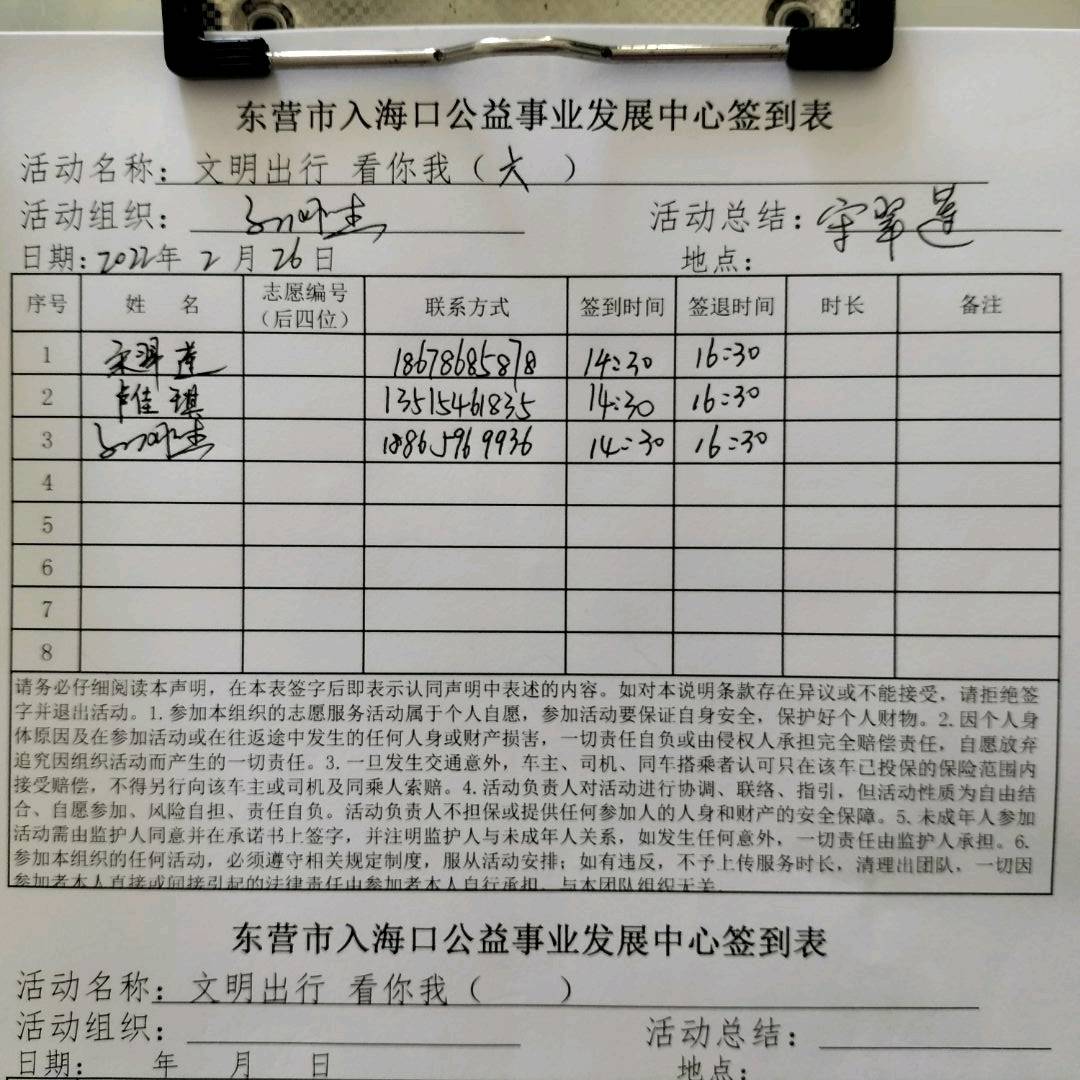 东营市入海口公益事业发展中心签到表
活动名称：文明出行 看你我（六）
活动组织： 活动总结：宋翠莲
日期：2022年2月26日 地点：
序号 姓 名 志愿编号（后四位） 联系方式 签到时间 签退时间 时长 备注
1 宋翠莲 18678685878 14:30 16:30
2 卢佳琪 13515461835 14:30 16:30
3 18865969936 14:30 16:30
4
5
6
7
8
请务必仔细阅读本声明，在本表签字后即表示认同声明中表述的内容。如对本说明条款存在异议或不能接受，请拒绝签
字并退出活动。1.参加本组织的志愿服务活动属于个人自愿，参加活动要保证自身安全，保护好个人财物。2.因个人身
体原因及在参加活动或在往返途中发生的任何人身或财产损害，一切责任自负或由侵权人承担完全赔偿责任，自愿放弃
追究因组织活动而产生的一切责任。3.一旦发生交通意外，车主、司机、同车搭乘者认可只在该车已投保的保险范围内
接受赔偿，不得另行向该车主或司机及同乘人索赔。4.活动负责人对活动进行协调、联络、指引，但活动性质为自由结
合、自愿参加、风险自担、责任自负。活动负责人不担保或提供任何参加人的人身和财产的安全保障。5.未成年人参加
活动需由监护人同意并在承诺书上签字，并注明监护人与未成年人关系，如发生任何意外，一切责任由监护人承担。6.
参加本组织的任何活动，必须遵守相关规定制度，服从活动安排；如有违反，不予上传服务时长，清理出团队，一切因
参加者本人直接或间接引起的法律责任由参加者本人自行承担，与本团队组织无关。
东营市入海口公益事业发展中心签到表
活动名称：文明出行 看你我（ ）
活动组织： 活动总结：
日期： 年 月 日 地点：